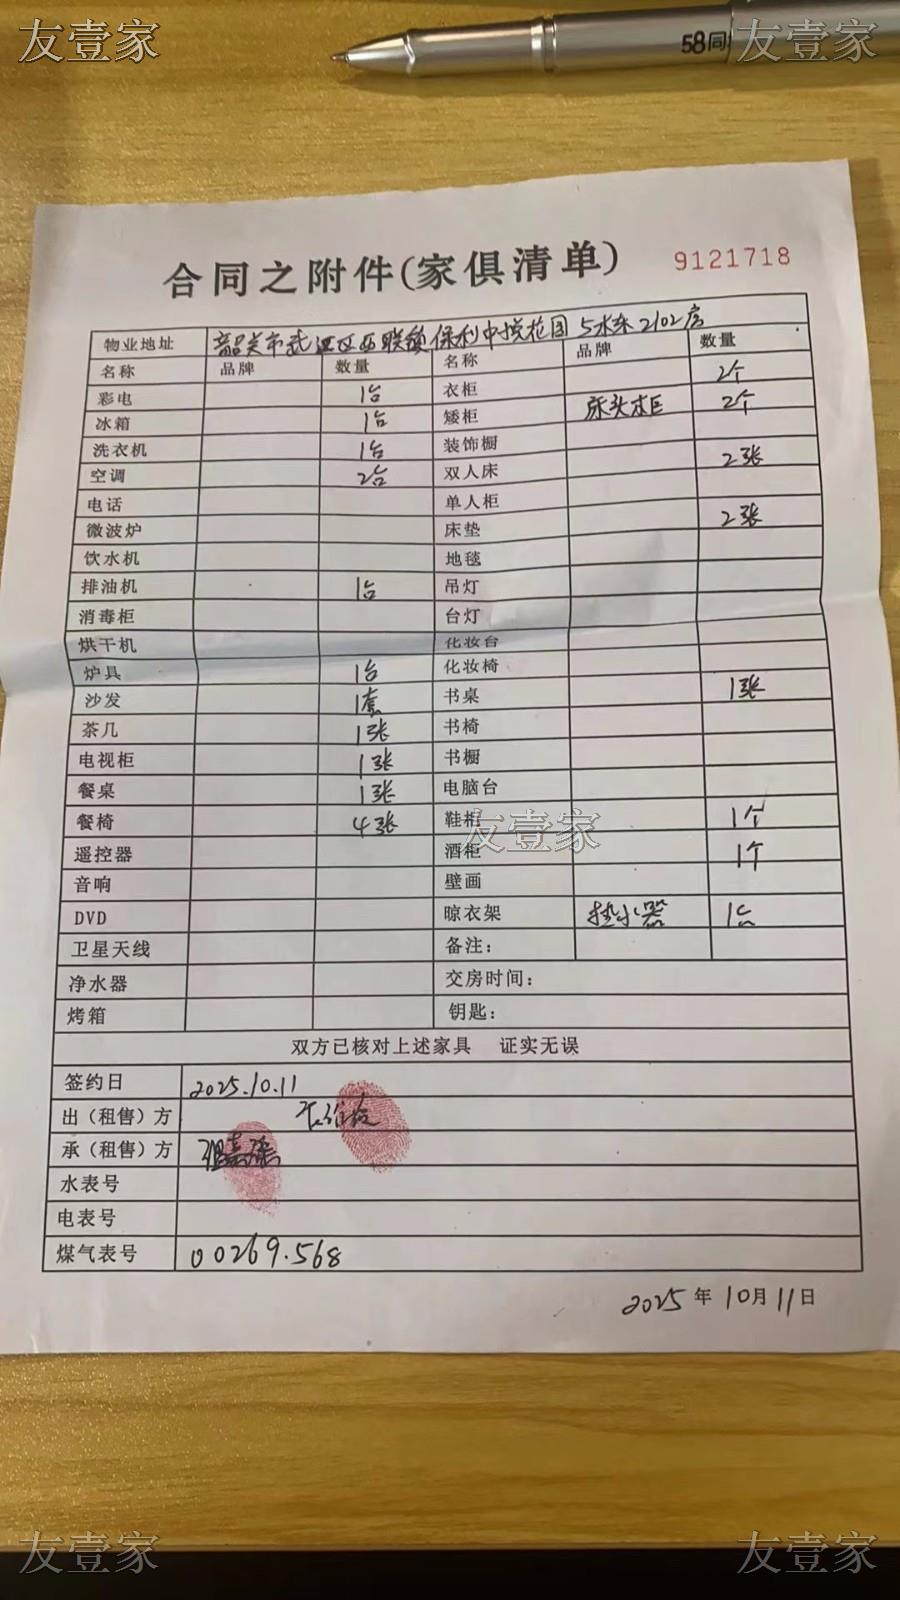 友壹家 友壹家
58同
合同之附件(家俱清单) 9121718
物业地址 韶关市武江区西联镇保利中悦花园5水东2102房
名称 品牌 数量 名称 品牌 数量
彩电 1台 衣柜 2个
冰箱 1台 矮柜 床头柜 2个
洗衣机 1台 装饰橱
空调 2台 双人床 2张
电话 单人柜
微波炉 床垫 2张
饮水机 地毯
排油机 1台 吊灯
消毒柜 台灯
烘干机 化妆台
炉具 1台 化妆椅
沙发 1套 书桌 1张
茶几 1张 书椅
电视柜 1张 书橱
餐桌 1张 电脑台
餐椅 4张 鞋柜 1个
友壹家
遥控器 酒柜 1个
音响 壁画
DVD 晾衣架 热水器 1台
卫星天线 备注:
净水器 交房时间:
烤箱 钥匙:
双方已核对上述家具 证实无误
签约日 2025.10.11
出（租售）方
承（租售）方
水表号
电表号
煤气表号 00269.568
2025年10月11日
友壹家 友壹家